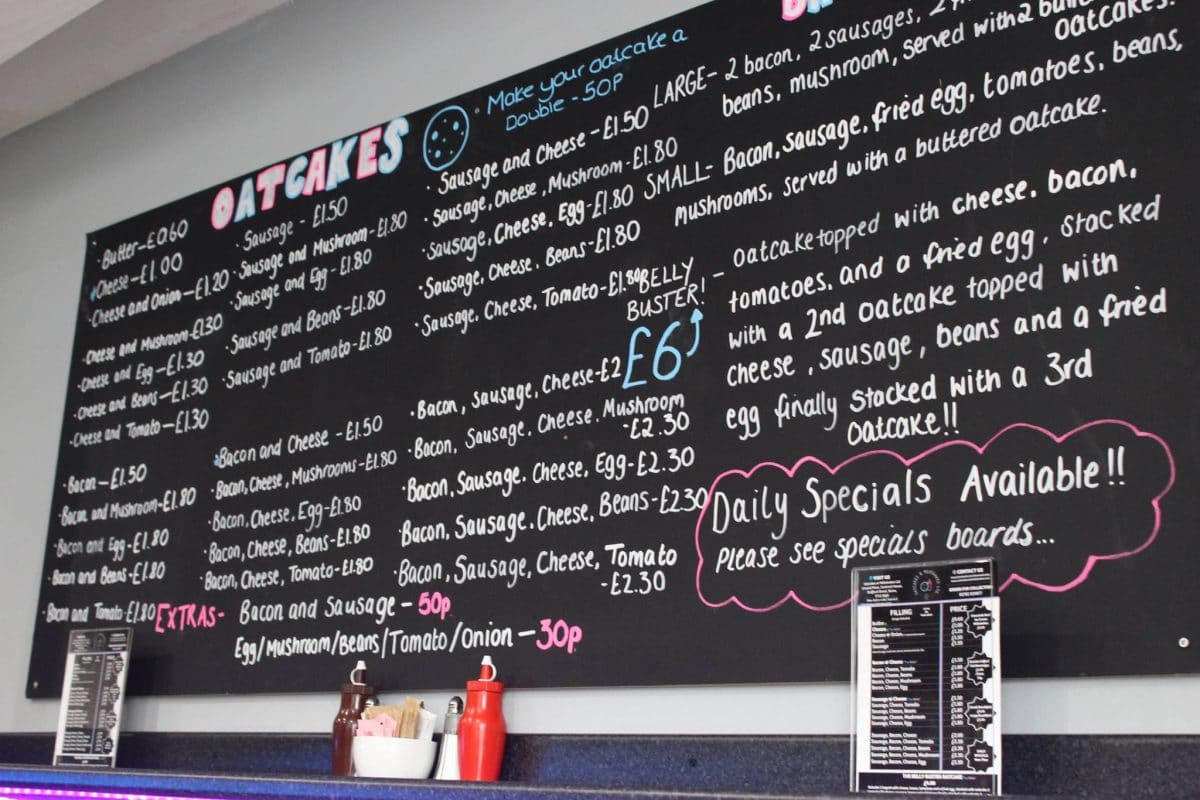 OATCAKES
Make your oatcake a
Double - 50P
• Butter - £0.60
• Cheese - £1.00
• Cheese and Onion - £1.20
• Cheese and Mushroom - £1.30
• Cheese and Egg - £1.30
• Cheese and Beans - £1.30
• Cheese and Tomato - £1.30
• Bacon - £1.50
• Bacon and Mushroom - £1.80
• Bacon and Egg - £1.80
• Bacon and Beans - £1.80
• Bacon and Tomato - £1.80
• Sausage - £1.50
• Sausage and Mushroom - £1.80
• Sausage and Egg - £1.80
• Sausage and Beans - £1.80
• Sausage and Tomato - £1.80
• Bacon and Cheese - £1.50
• Bacon, Cheese, Mushrooms - £1.80
• Bacon, Cheese, Egg - £1.80
• Bacon, Cheese, Beans - £1.80
• Bacon, Cheese, Tomato - £1.80
• Sausage and Cheese - £1.50
• Sausage, Cheese, Mushroom - £1.80
• Sausage, Cheese, Egg - £1.80
• Sausage, Cheese, Beans - £1.80
• Sausage, Cheese, Tomato - £1.80
• Bacon, Sausage, Cheese - £2
• Bacon, Sausage, Cheese, Mushroom
- £2.30
• Bacon, Sausage, Cheese, Egg - £2.30
• Bacon, Sausage, Cheese, Beans - £2.30
• Bacon, Sausage, Cheese, Tomato
- £2.30
EXTRAS - Bacon and Sausage - 50p
Egg/Mushroom/Beans/Tomato/Onion - 30p
LARGE - 2 bacon, 2 sausages, 2
beans, mushroom, served with 2
oatcakes.
SMALL - Bacon, sausage, fried egg, tomatoes, beans,
mushrooms, served with a buttered oatcake.
BELLY
BUSTER!
£6
- oatcake topped with cheese, bacon,
tomatoes, and a fried egg, stacked
with a 2nd oatcake topped with
cheese, sausage, beans and a fried
egg finally stacked with a 3rd
oatcake!!
Daily Specials Available!!
Please see specials boards...
VISIT US
CONTACT US
FILLING
PRICE